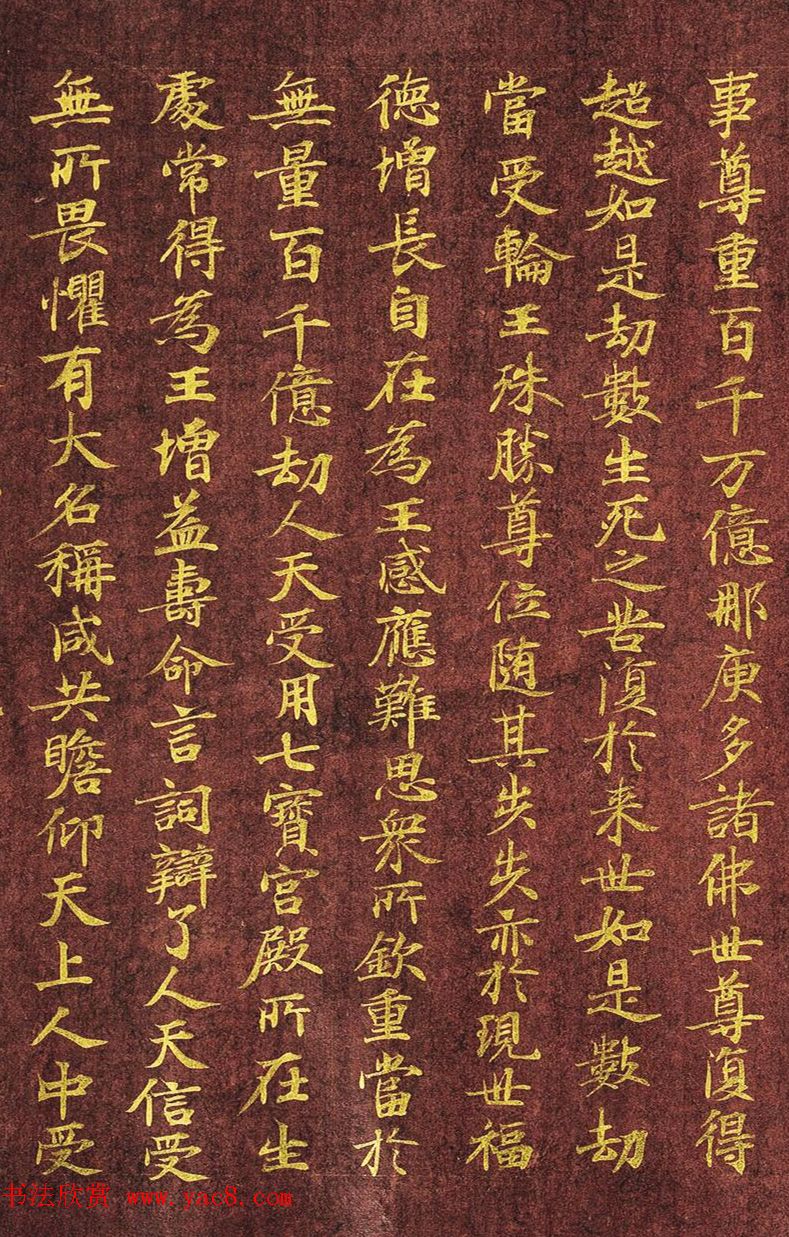 事尊重百千万億那庾多諸佛世尊復得
超越如是劫數生死之苦復於来世如是數劫
當受輪王殊勝尊位随其步步亦於現世福
德增長自在為王感應難思衆所欽重當於
無量百千億劫人天受用七寶宮殿所在生
處常得為王增益壽命言詞辯了人天信受
無所畏懼有大名稱咸共瞻仰天上人中受
书法欣赏 www.yac8.com